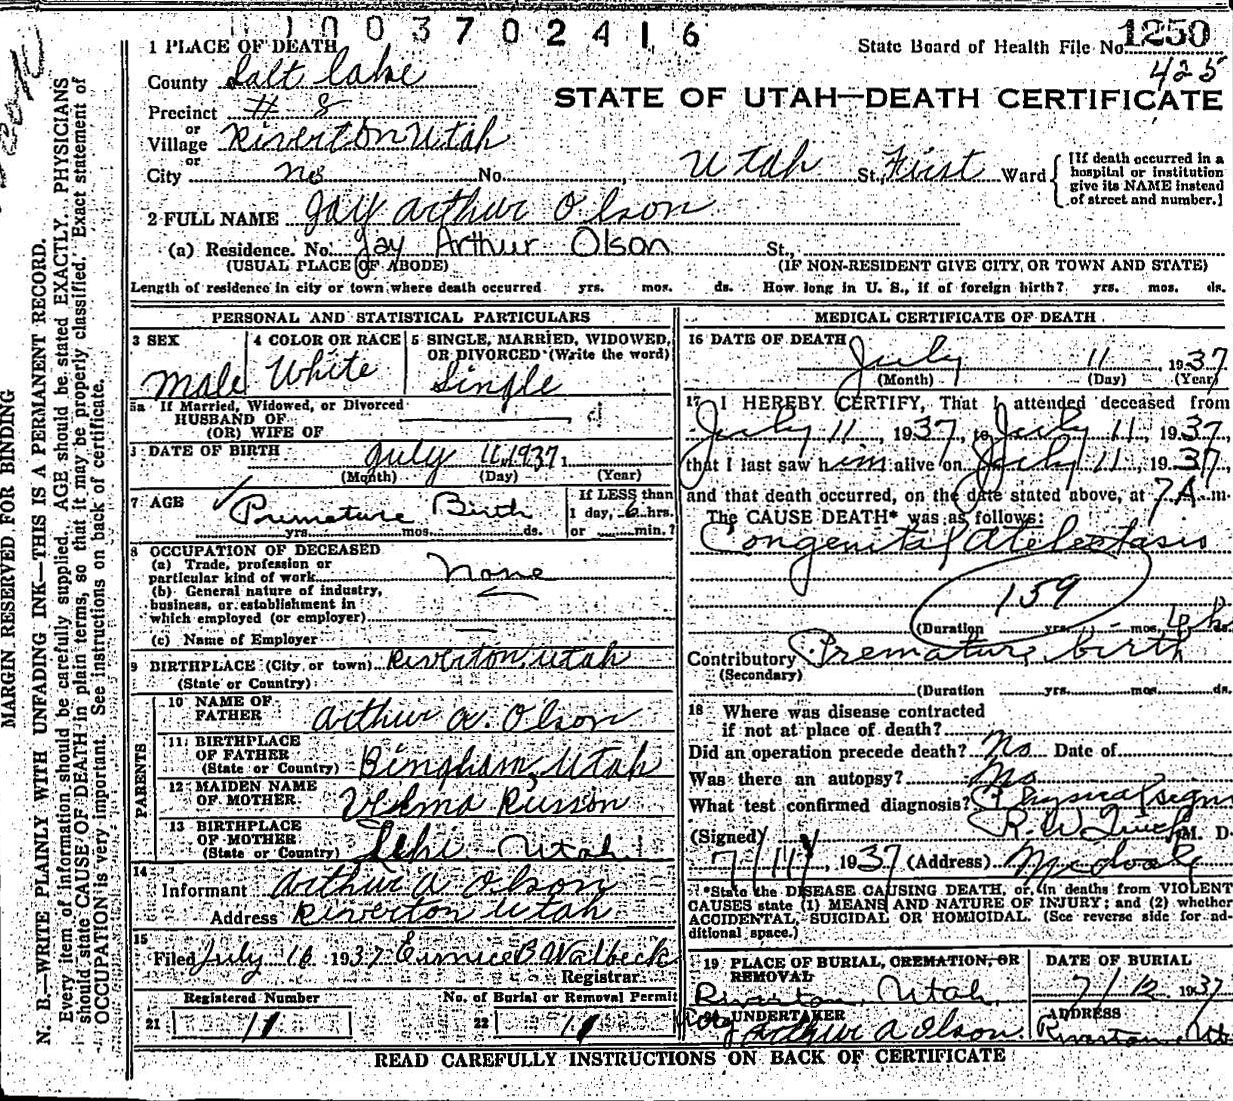 1003702416
State Board of Health File No. 1250
425
1 PLACE OF DEATH
County Salt Lake
STATE OF UTAH—DEATH CERTIFICATE
Precinct # 8
or
Village Riverton Utah
or
City no No. Utah St. First Ward
[If death occurred in a hospital or institution give its NAME instead of street and number.]
2 FULL NAME Jay Arthur Olson
(a) Residence. No. Jay Arthur Olson St.,
(USUAL PLACE OF ABODE) (IF NON-RESIDENT GIVE CITY OR TOWN AND STATE)
Length of residence in city or town where death occurred yrs. mos. ds. How long in U. S., if of foreign birth? yrs. mos. ds.
PERSONAL AND STATISTICAL PARTICULARS
3 SEX Male
4 COLOR OR RACE White
5 SINGLE, MARRIED, WIDOWED, OR DIVORCED (Write the word) Single
5a If Married, Widowed, or Divorced
HUSBAND OF
(OR) WIFE OF
DATE OF BIRTH July 11, 1937
(Month) (Day) (Year)
7 AGE Premature Birth
yrs. mos. ds.
If LESS than
1 day, 6 hrs.
or min.?
8 OCCUPATION OF DECEASED
(a) Trade, profession or
particular kind of work None
(b) General nature of industry,
business, or establishment in
which employed (or employer)
(c) Name of Employer
9 BIRTHPLACE (City or town) Riverton, Utah
(State or Country)
PARENTS
10 NAME OF FATHER Arthur A. Olson
11 BIRTHPLACE OF FATHER (State or Country) Bingham, Utah
12 MAIDEN NAME OF MOTHER Velma Russon
13 BIRTHPLACE OF MOTHER (State or Country) Lehi Utah
14 Informant Arthur A Olson
Address Riverton Utah
15 Filed July 16 1937 Eunice B Walbeck
Registrar
Registered Number
21 11
No. of Burial or Removal Permit
22 11
MEDICAL CERTIFICATE OF DEATH
16 DATE OF DEATH July 11, 1937
(Month) (Day) (Year)
17 I HEREBY CERTIFY, That I attended deceased from
July 11, 1937, to July 11, 1937,
that I last saw him alive on July 11, 1937,
and that death occurred, on the date stated above, at 7 A m.
The CAUSE DEATH* was as follows:
Congenital Atelectasis
159
(Duration yrs. mos. ds.
Contributory Premature birth
(Secondary)
(Duration yrs. mos. ds.
18 Where was disease contracted
if not at place of death?
Did an operation precede death? No Date of
Was there an autopsy? No
What test confirmed diagnosis? Physical signs
(Signed) R. W. M. D.
7/11, 1937 (Address) Midvale
*State the DISEASE CAUSING DEATH, or, in deaths from VIOLENT
CAUSES state (1) MEANS AND NATURE OF INJURY; and (2) whether
ACCIDENTAL, SUICIDAL OR HOMICIDAL. (See reverse side for ad-
ditional space.)
19 PLACE OF BURIAL, CREMATION, OR REMOVAL
Riverton, Utah.
DATE OF BURIAL
7/12 1937
UNDERTAKER
Arthur A Olson.
ADDRESS
Riverton, Ut
READ CAREFULLY INSTRUCTIONS ON BACK OF CERTIFICATE
MARGIN RESERVED FOR BINDING
N. B.—WRITE PLAINLY WITH UNFADING INK—THIS IS A PERMANENT RECORD.
Every item of information should be carefully supplied. AGE should be stated EXACTLY. PHYSICIANS
should state CAUSE OF DEATH in plain terms, so that it may be properly classified. Exact statement of
OCCUPATION is very important. See instructions on back of certificate.